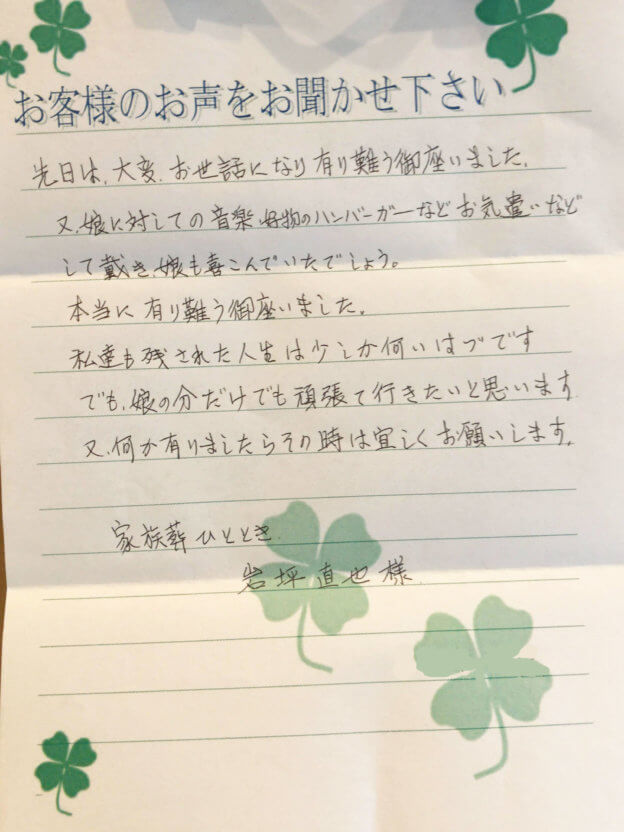 お客様のお声をお聞かせ下さい
先日は、大変、お世話になり有り難う御座いました。
又、娘に対しての音楽、好物のハンバーガーなどお気遣いなど
して戴き、娘も喜こんでいたでしょう。
本当に有り難う御座いました。
私達も残された人生は少しか何いはづです
でも、娘の分だけでも頑張て行きたいと思います
又、何か有りましたらその時は宜しくお願いします。
家族葬ひととき
岩坪直也様